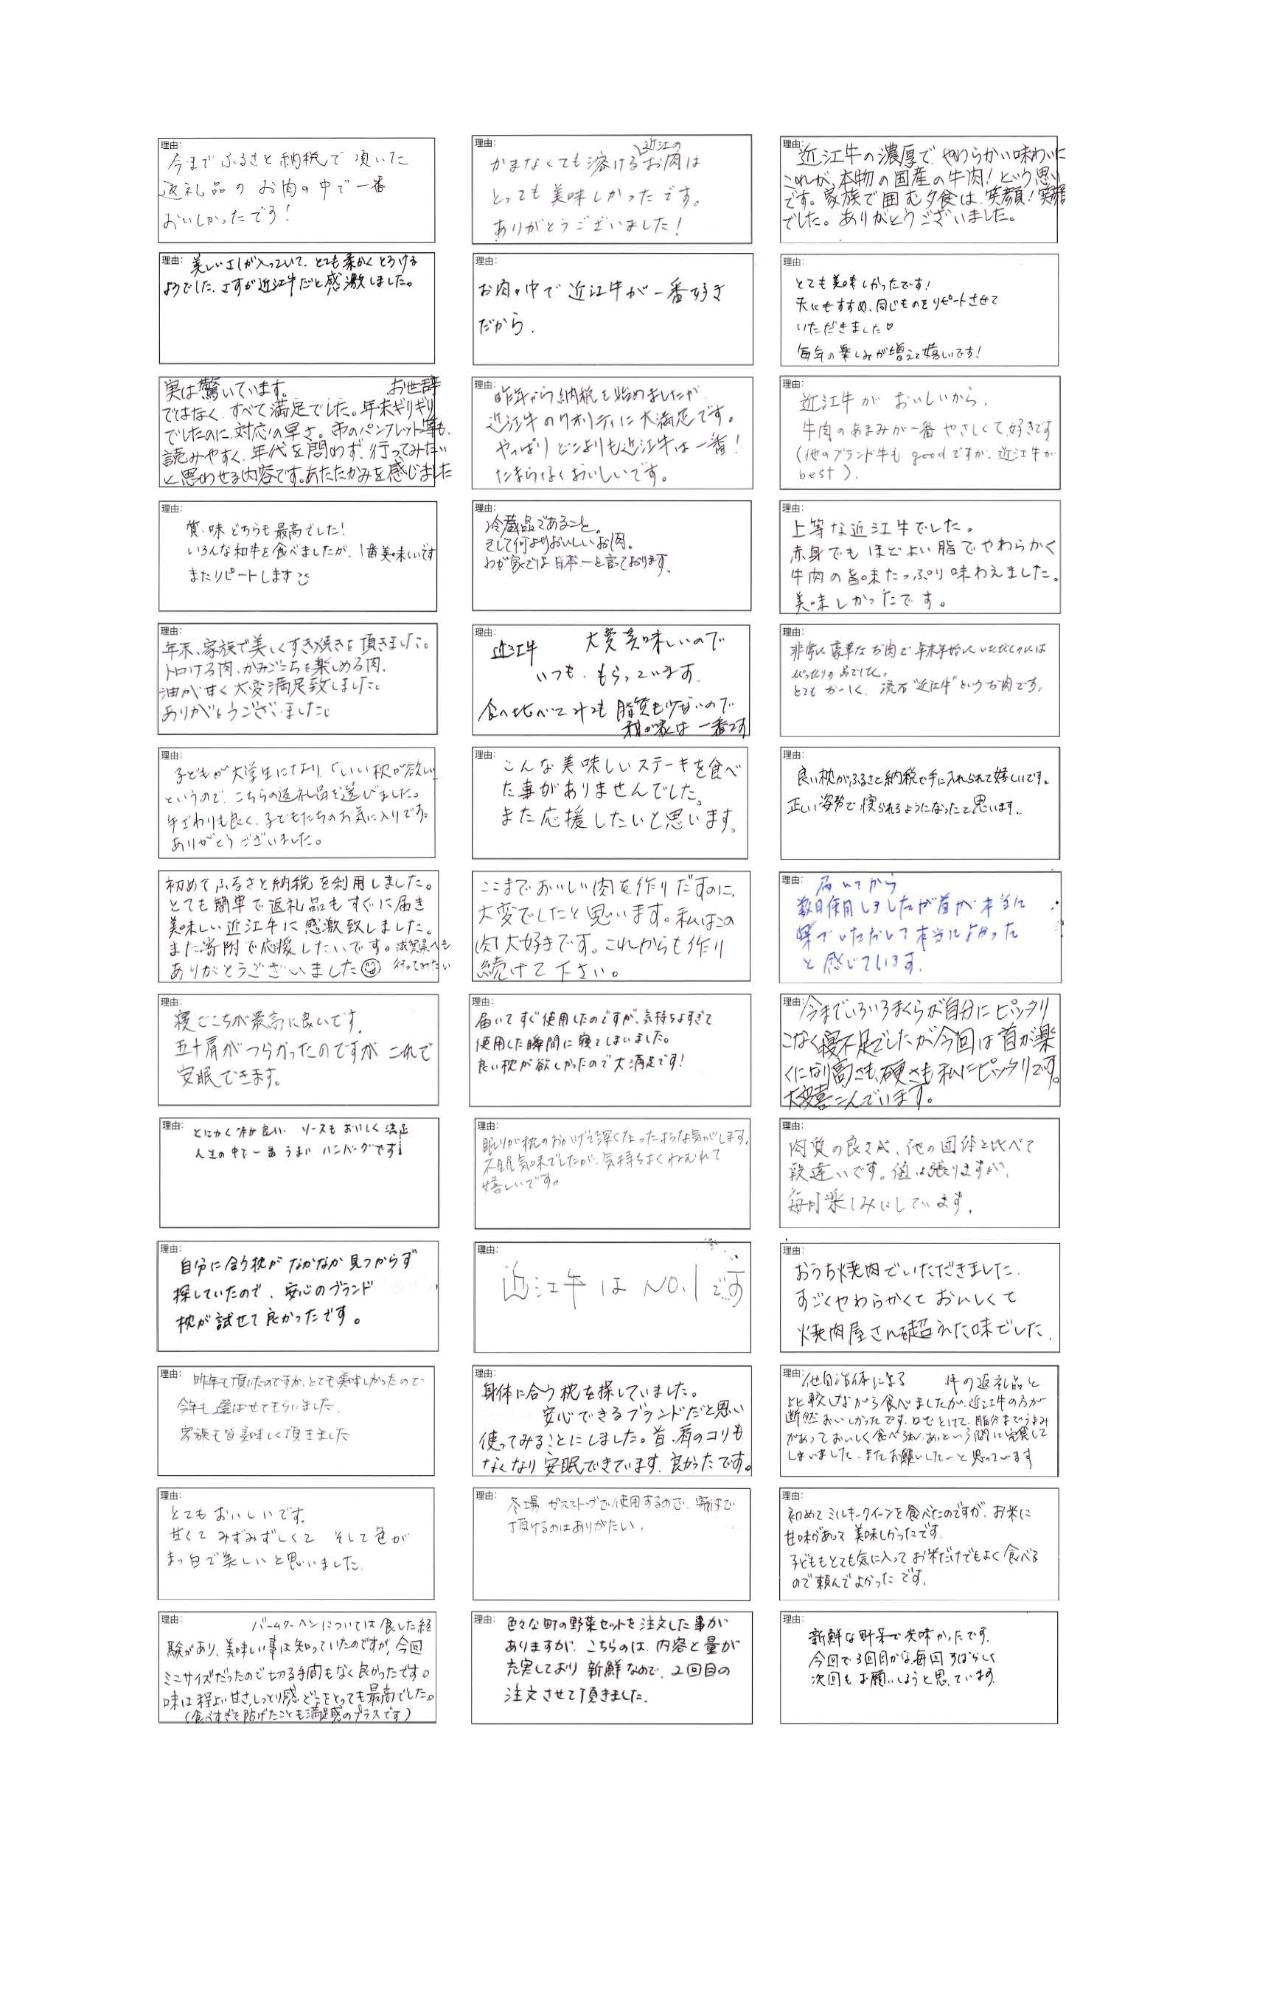 理由:
今までふるさと納税で頂いた
返礼品のお肉の中で一番
おいしかったでう!
理由:
近江の
かまなくても溶けるお肉は
とっても美味しかったです。
ありがとうございました!
理由:
近江牛の濃厚でやわらかい味わいに
これが、本物の国産の牛肉!という思い
です。家族で囲む夕食は、笑顔!笑顔
でした。ありがとうございました。
理由:
美しいさしが入っていて、とても柔かくとろける
ようでした、さすが近江牛だと感激しました。
理由:
お肉の中で近江牛が一番好き
だから.
理由:
とても美味しかったです!
夫にもすすめ、同じものをリピートさせて
いただきました♡
毎年の楽しみが増えて嬉しいです!
実は驚いています。 お世辞
ではなく、すべて満足でした。年末ギリギリ
でしたのに、対応の早さ。市のパンフレット等も、
読みやすく、年代を問わず、行ってみたい
と思わせる内容です。あたたかみを感じました
理由:
昨年から納税を始めましたが
近江牛のクオリティに大満足です。
やっぱりどこよりも近江牛は一番!
たまらなくおいしいです。
理由:
近江牛が おいしいから.
牛肉のあまみが一番やさしくて、好きです
(他のブランド牛も goodですが、近江牛が
best).
理由:
質・味どちらも最高でした!
いろんな和牛を食べましたが、1番美味しいです
またリピートします
理由:
冷蔵品であること。
そして何よりおいしいお肉。
わが家では日本一と言っております。
理由:
上等な近江牛でした。
赤身でも ほどよい脂でやわらかく
牛肉の旨味たっぷり味わえました。
美味しかったです。
理由:
年末、家族で美しくすき焼きを頂きました。
トロける肉、かみごこちを楽しめる肉、
油が甘く大変満足致しました。
ありがとうございました。
理由:
近江牛 大変美味しいので
いつも、もらっています.
食べ比べてみても 脂質も少ないので
我が家は一番です
理由:
非常に豪華なお肉で年末年始にいただくのには
ぴったりの品でした。
とても 流石"近江牛"というお肉です。
理由:
子どもが大学生になり「いい枕が欲しい」
というので、こちらの返礼品を選びました。
手ざわりも良く、子どもたちのお気に入りです。
ありがとうございました。
理由:
こんな美味しいステーキを食べ
た事がありませんでした。
また応援したいと思います。
理由:
良い枕がふるさと納税で手に入れられて嬉しいです。
正しい姿勢で寝られるようになったと思います.
初めてふるさと納税を利用しました。
とても簡単で返礼品もすぐに届き
美味しい近江牛に感激致しました。
また寄附で応援したいです。滋賀県へも
ありがとうございました 行ってみたい
ここまでおいしい肉を作りだすのに、
大変でしたと思います。私はこの
肉大好きです。これからも作り
続けて下さい。
理由:
届いてから
数日使用しましたが首が本当に
楽でいただいて本当によかった
と感じています.
理由:
寝ごこちが最高に良いです.
五十肩がつらかったのですが これで
安眠できます。
理由:
届いてすぐ使用したのですが、気持ちよすぎて
使用した瞬間に寝てしまいました。
良い枕が欲しかったので大満足です!
理由:
今までいろいろまくらが自分にピッタリ
こなく寝不足でしたが今回は首が楽
くになり高さも、硬さも私にピッタリです。
大変喜こんでいます。
理由:
とにかく味が良い ソースもおいしく満足
人生の中で一番うまいハンバーグです!
理由:
眠りが枕のおかげで深くなったような気がします。
不眠気味でしたが、気持ちよくねむれて
嬉しいです。
理由:
肉質の良さが、他の団体と比べて
段違いです。値は張りますが、
毎月楽しみにしています.
理由:
自分に合う枕がなかなか見つからず
探していたので、安心のブランド
枕が試せて良かったです。
理由:
近江牛はNO.1です
理由:
おうち焼肉でいただきました.
すごくやわらかくておいしくて
焼肉屋さんを超えた味でした.
理由:
昨年も頂いたのですが、とても美味しかったので
今年も選ばせてもらいました.
家族も皆美味しく頂きました
理由:
身体に合う枕を探していました。
安心できるブランドだと思い
使ってみることにしました。首・肩のコリも
なくなり安眠できています。良かったです。
理由:
他自治体による 牛の返礼品と
比較しながら食べましたが、近江牛の方が
断然おいしかったです。口でとけて、脂分までうまみ
があっておいしく食べ あっという間に完食して
しまいました.またお願いしたーと思っています
理由:
とてもおいしいです.
甘くて みずみずしくて そして色が
まっ白で美しいと思いました.
理由:
冬場 ガスストーブを使用するので、
頂けるのはありがたい.
理由:
初めてミルキークイーンを食べたのですが、お米に
甘味があって美味しかったです.
子どももとても気に入ってお米だけでもよく食べる
ので頼んでよかったです.
理由:
バームクーヘンについては食した経
験があり、美味しい事は知っていたのですが、今回
ミニサイズだったので切る手間もなく良かったです。
味は程よい甘さ、しっとり感、どこをとっても最高でした。
(食べすぎを防げたことも満足感のプラスです)
理由:
色々な町の野菜セットを注文した事が
ありますが、こちらのは、内容と量が
充実しており 新鮮なので、2回目の
注文させて頂きました.
理由:
新鮮な野菜で美味かったです.
今回で3回目かな毎回すばらしく
次回もお願いしようと思っています.